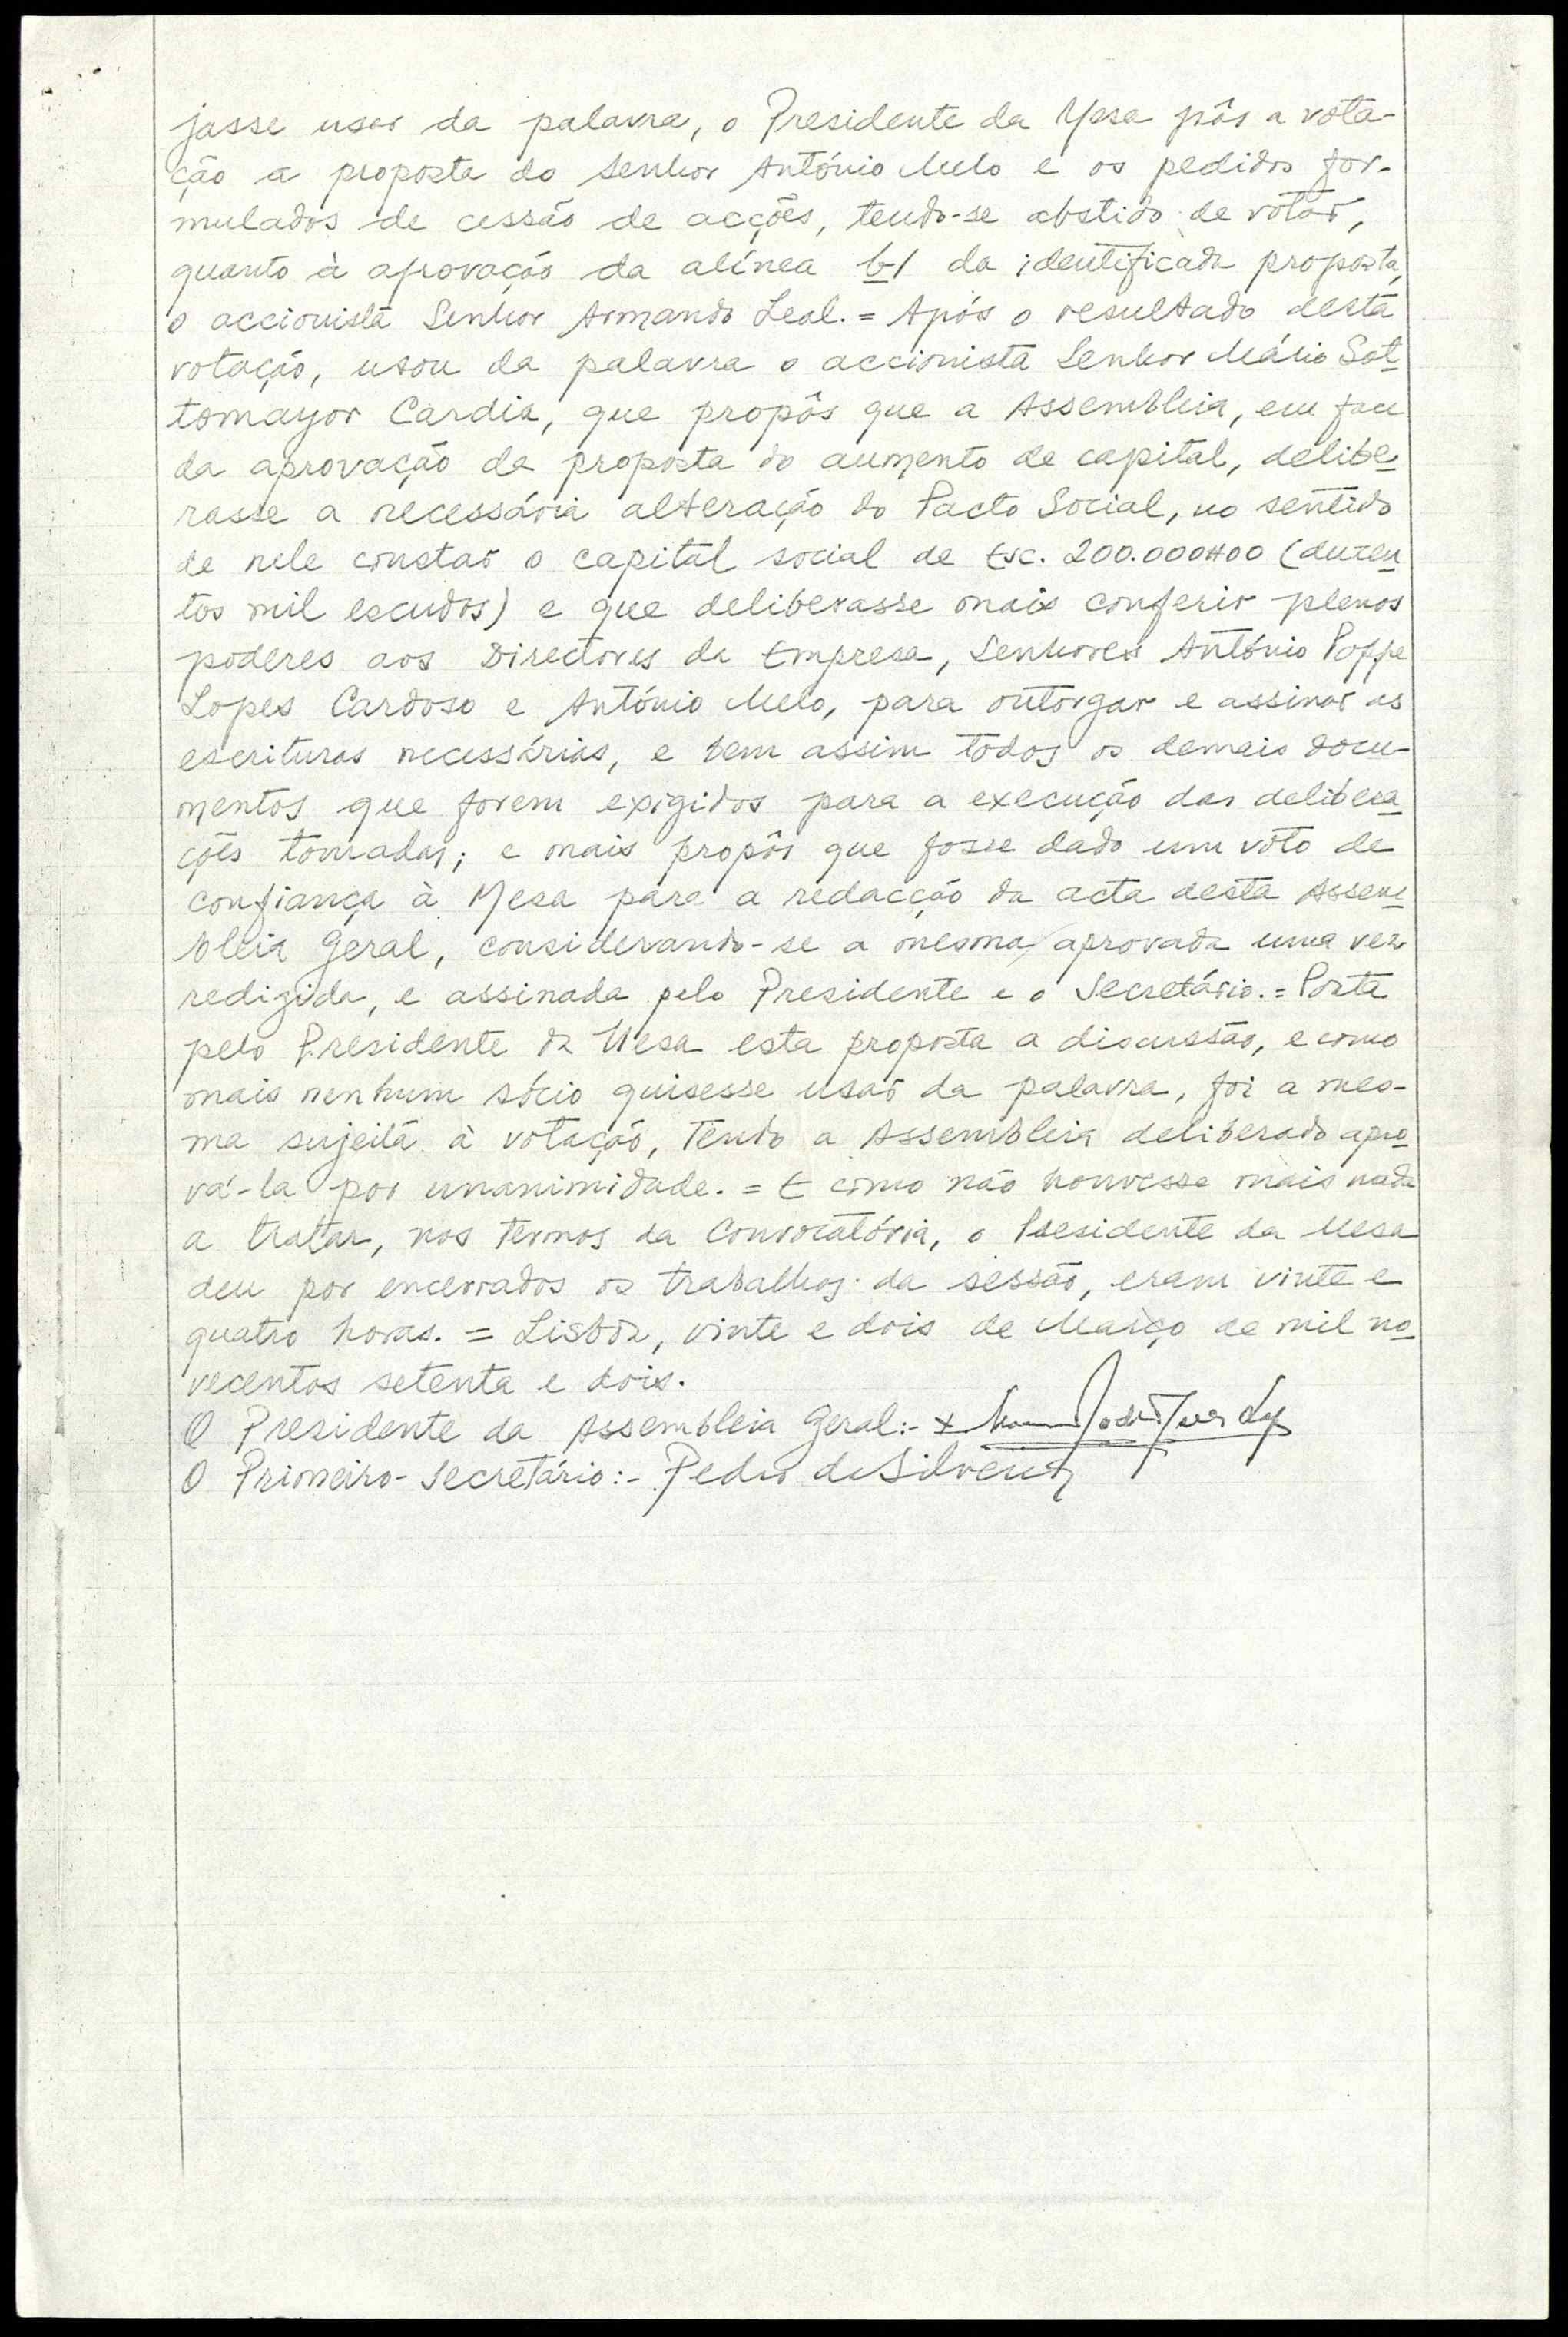 jasse usar da palavra, o Presidente da Mesa pôs a vota-
ção a proposta do Senhor António Melo e os pedidos for-
mulados de cessão de acções, tendo-se abstido de votar,
quanto à aprovação da alínea b/ da identificada proposta,
o accionista Senhor Armando Leal. = Após o resultado desta
votação, usou da palavra o accionista Senhor Mário Sot
tomayor Cardia, que propôs que a Assembleia, em face
da aprovação da proposta do aumento de capital, delibe
rasse a necessária alteração do Pacto Social, no sentido
de nele constar o capital social de Esc. 200.000$00 (duzen
tos mil escudos) e que deliberasse mais conferir plenos
poderes aos Directores da Empresa, Senhores António Poppe
Lopes Cardoso e António Melo, para outorgar e assinar as
escrituras necessárias, e bem assim todos os demais docu-
mentos que forem exigidos para a execução das delibera
ções tomadas; e mais propôs que fosse dado um voto de
confiança à Mesa para a redacção da acta desta Assem
bleia Geral, considerando-se a mesma aprovada uma vez
redigida, e assinada pelo Presidente e o Secretário. = Posta
pelo Presidente da Mesa esta proposta a discussão, e como
mais nenhum sócio quisesse usar da palavra, foi a mes-
ma sujeita à votação, tendo a Assembleia deliberado apro
vá-la por unanimidade. = E como não houvesse mais nada
a tratar, nos termos da Convocatória, o Presidente da Mesa
deu por encerrados os trabalhos da sessão, eram vinte e
quatro horas. = Lisboa, vinte e dois de Março de mil no
vecentos setenta e dois.
O Presidente da Assembleia Geral:- x
O Primeiro-Secretário:- Pedro da Silveira